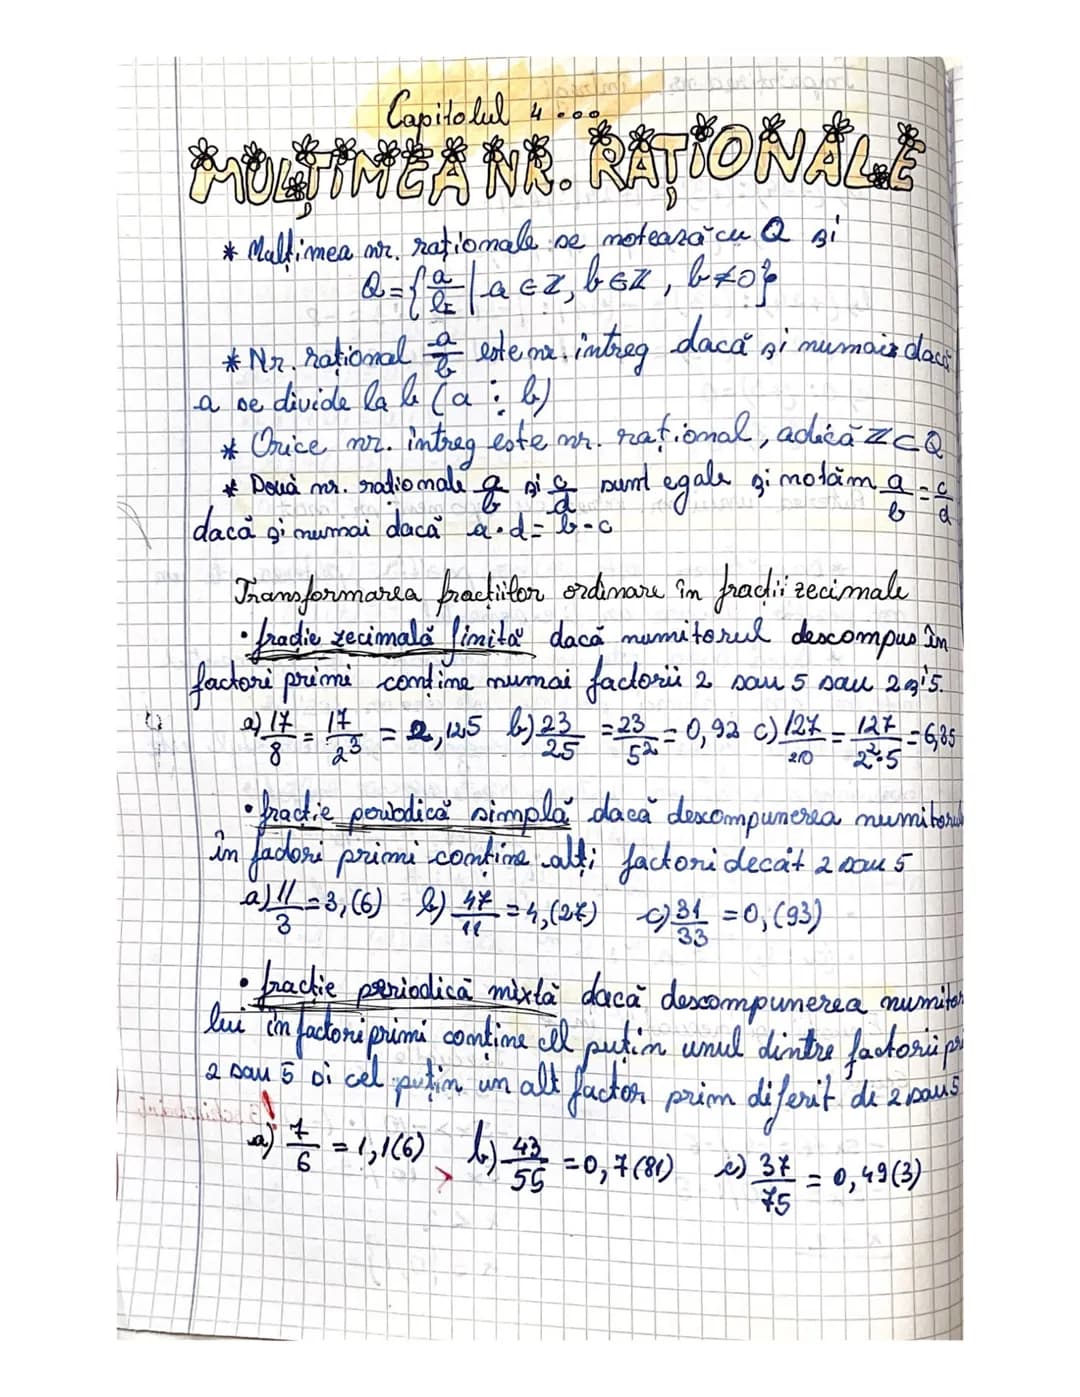 Capitolul 4...
MULȚIMEA NR. RAȚIONALE
* Mulțimea nr. raționale se notează cu Q și
Q={a/b | a∈Z, b∈Z, b≠0}
* Nr. rațional a/b este nr. întreg dacă și numai dacă
a se divide la b (a ⋮ b)
* Orice nr. întreg este nr. rațional, adică Z⊂Q
* Două nr. raționale a/b și c/d sunt egale și notăm a/b=c/d
dacă și numai dacă a·d=b·c
Transformarea fracțiilor ordinare în fracții zecimale
• fracție zecimală finită dacă numitorul descompus în
factori primi conține numai factorii 2 sau 5 sau 2 și 5.
a) 17/8 = 17/2³ = 2,125 b) 23/25 = 23/5² = 0,92 c) 127/20 = 127/2²·5 = 6,35
• fracție periodică simplă dacă descompunerea numitorul
în factori primi conține alți factori decât 2 sau 5
a) 11/3 = 3,(6) b) 47/11 = 4,(27) c) 31/33 = 0,(93)
• fracție periodică mixtă dacă descompunerea numitor
lui în factori primi conține cel puțin unul dintre factorii pri
2 sau 5 și cel puțin un alt factor prim diferit de 2 sau 5
a) 7/6 = 1,1(6) b) 43/55 = 0,7(81) c) 37/75 = 0,49(3)